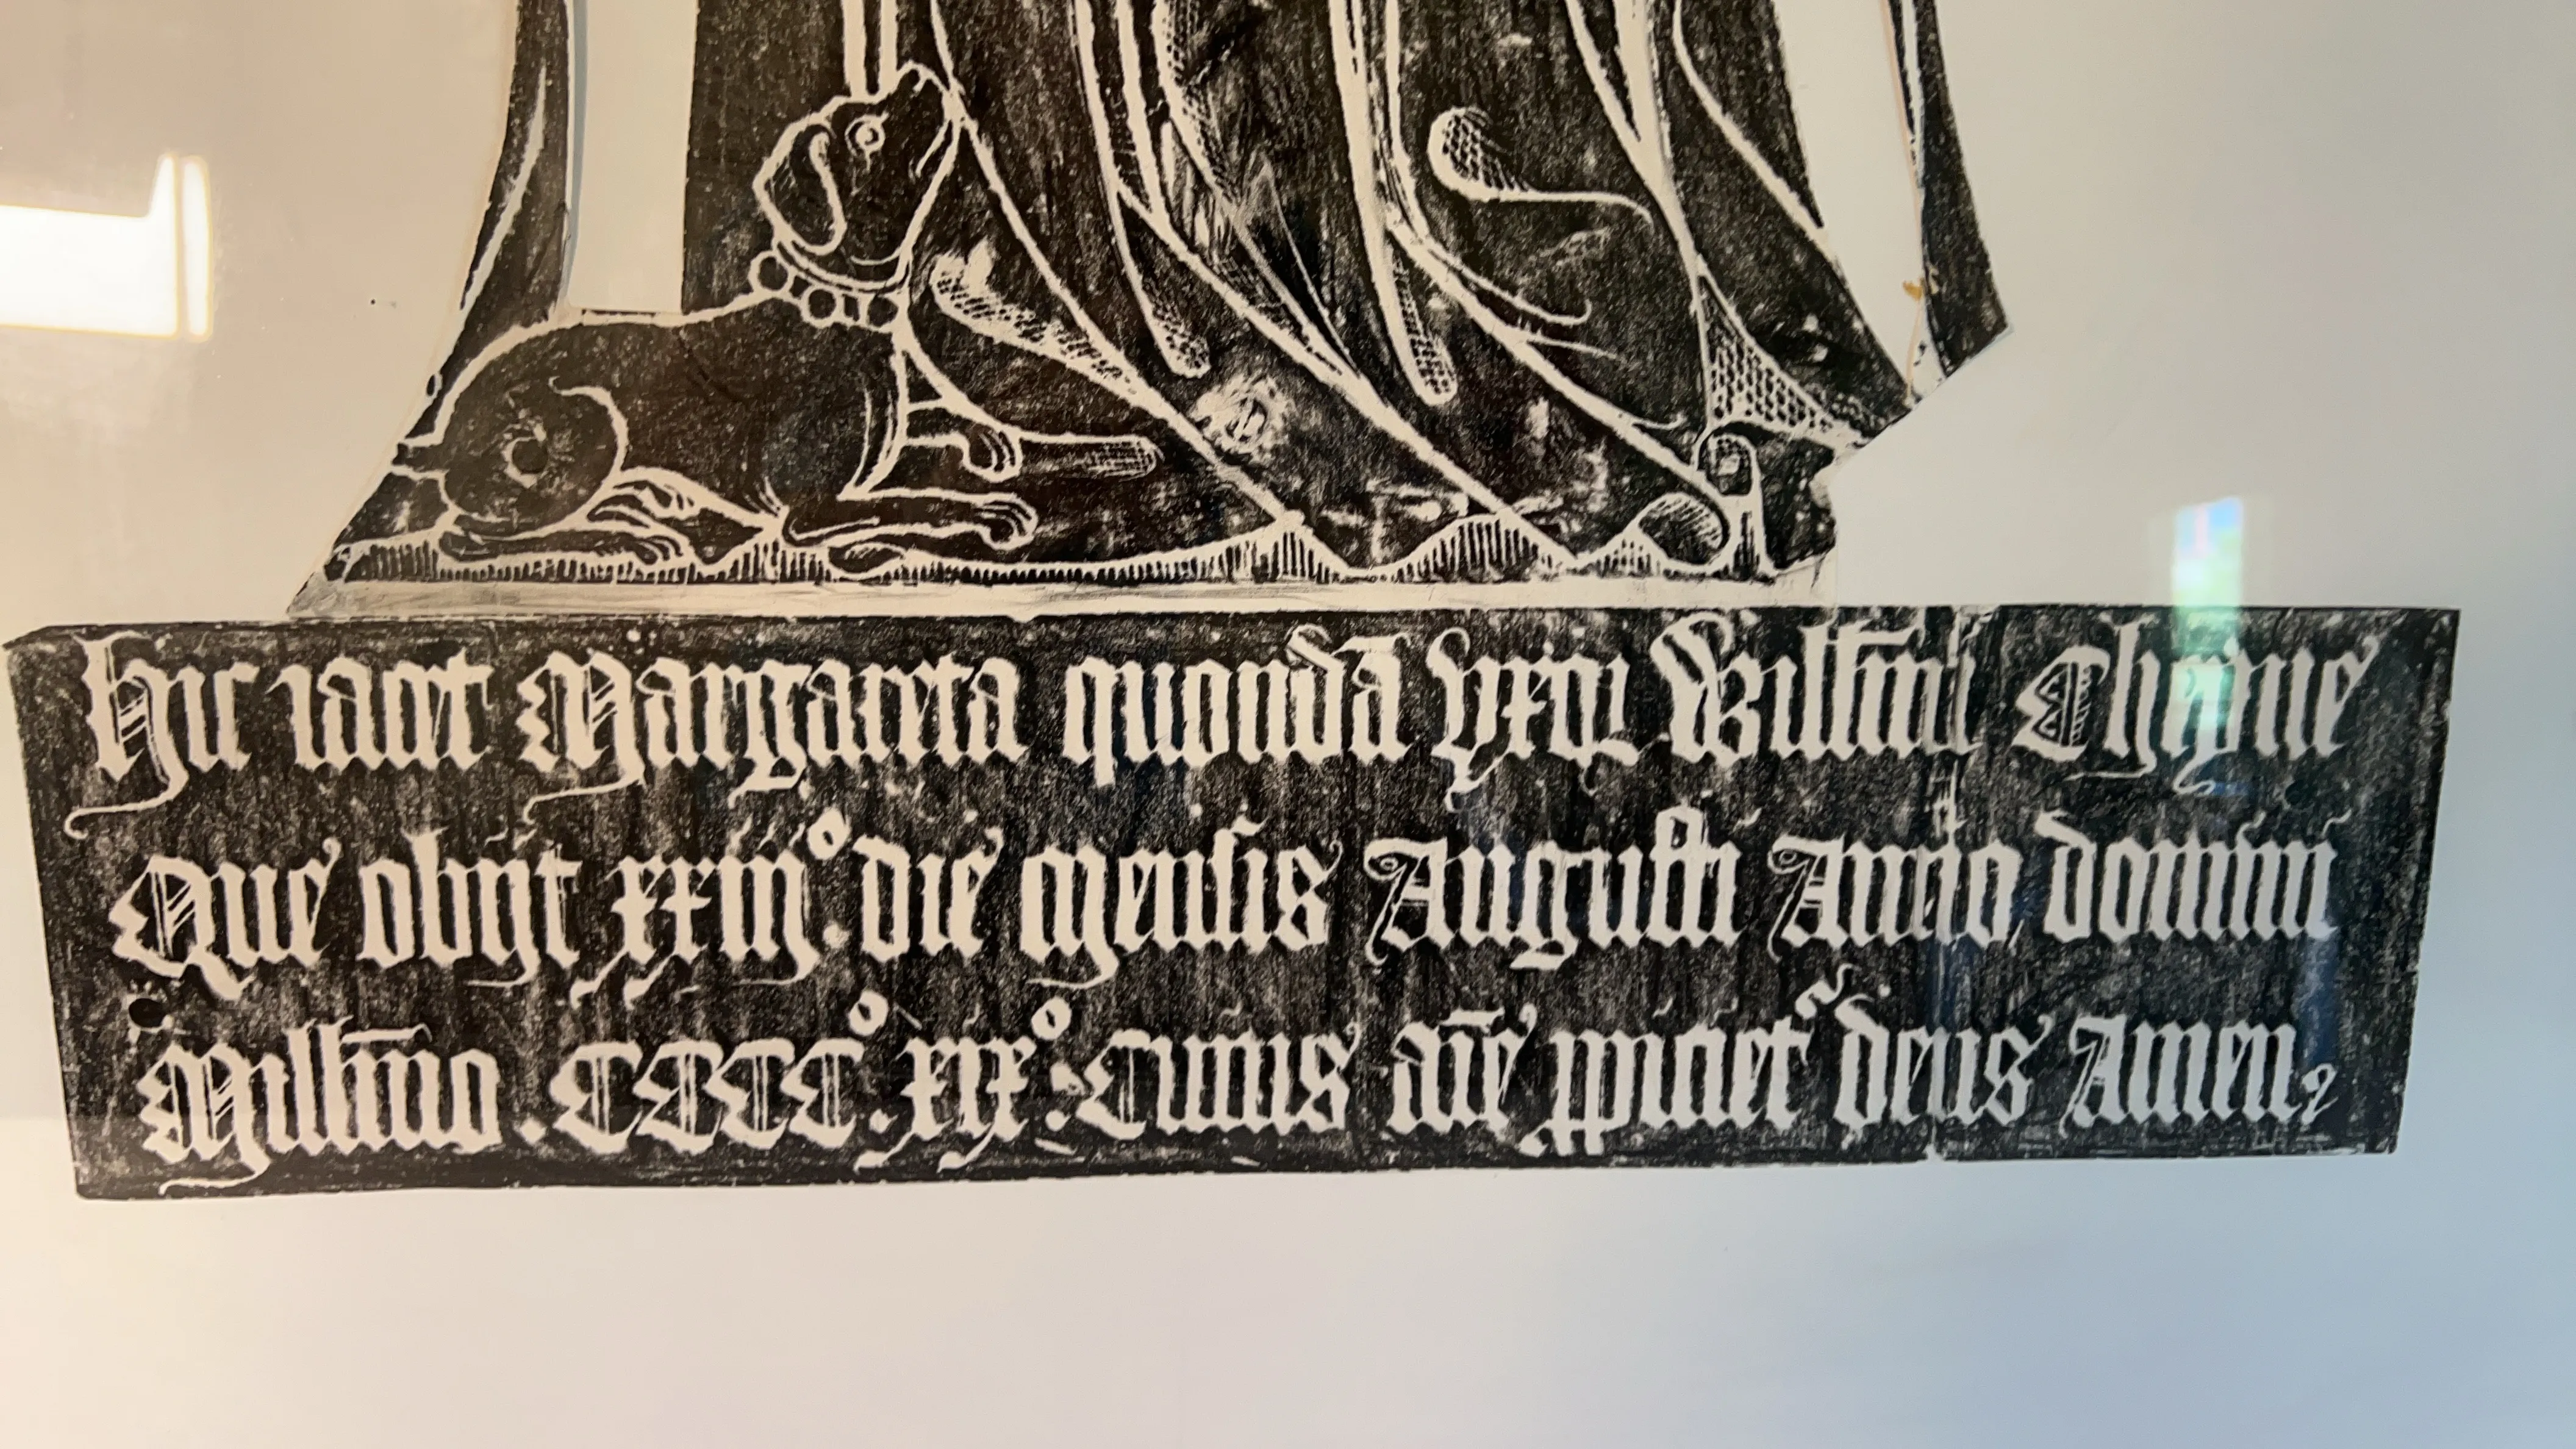 Hic iacet Margareta quondā vxor Willm̄i Cheyne
Que obijt xxiijº. die Mensis Augusti Anno domini
Millm̄o. CCCCº. xixº: Cuius aīe ꝓpiciet' deus Amen